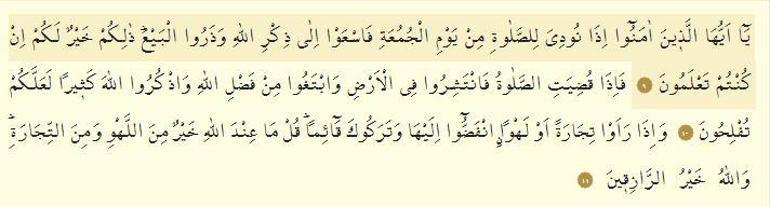 يَٓا اَيُّهَا الَّذ۪ينَ اٰمَنُٓوا اِذَا نُودِيَ لِلصَّلٰوةِ مِنْ يَوْمِ الْجُمُعَةِ فَاسْعَوْا اِلٰى ذِكْرِ اللّٰهِ وَذَرُوا الْبَيْعَۜ ذٰلِكُمْ خَيْرٌ لَكُمْ اِنْ
كُنْتُمْ تَعْلَمُونَ ﴿٩﴾ فَاِذَا قُضِيَتِ الصَّلٰوةُ فَانْتَشِرُوا فِي الْاَرْضِ وَابْتَغُوا مِنْ فَضْلِ اللّٰهِ وَاذْكُرُوا اللّٰهَ كَث۪يرًا لَعَلَّكُمْ
تُفْلِحُونَ ﴿١٠﴾ وَاِذَا رَاَوْا تِجَارَةً اَوْ لَهْوًاۨ انْفَضُّٓوا اِلَيْهَا وَتَرَكُوكَ قَٓائِمًاۜ قُلْ مَا عِنْدَ اللّٰهِ خَيْرٌ مِنَ اللَّهْوِ وَمِنَ التِّجَارَةِۜ
وَاللّٰهُ خَيْرُ الرَّازِق۪ينَ ﴿١١﴾